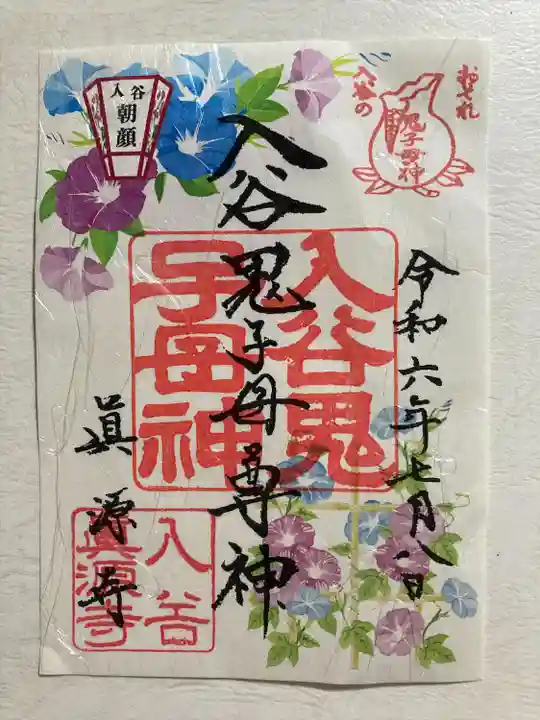 おそれ
入谷の
鬼子母神
令和六年七月八日
入谷鬼子母尊神
入谷鬼
子母神
眞源寺
入谷
眞源寺
入谷
朝顔